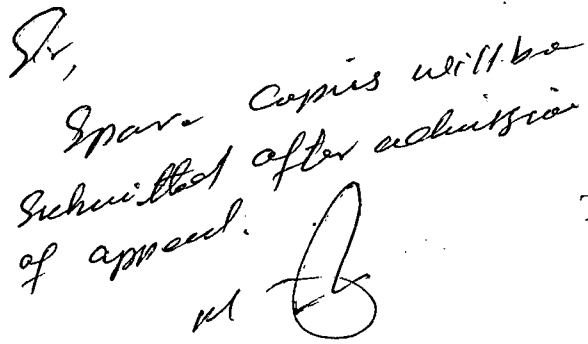 Sir,
Spare Copies will be
Submitted after admission
of appeal.